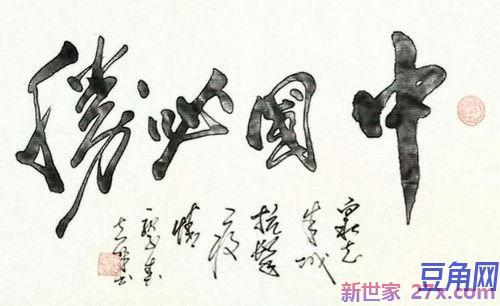 中国必胜
众志
成城
抗击
疫
情
豆角网
新世家 27x.com